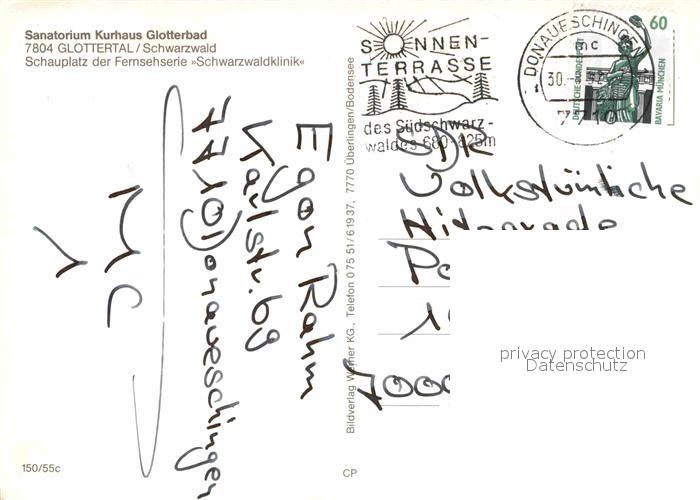 Sanatorium Kurhaus Glotterbad
7804 GLOTTERTAL / Schwarzwald
Schauplatz der Fernsehserie »Schwarzwaldklinik«
Egon Rahm
Karlstr. 69
7710 Donaueschingen
MC
1
150/55c
Bildverlag Werner KG., Telefon 0 75 51/6 19 37, 7770 Überlingen/Bodensee
CP
SONNEN-
TERRASSE
des Südschwarz-
waldes 680-825m
DONAUESCHINGEN
mc
30.
60
DEUTSCHE BUNDESPOST
BAVARIA MÜNCHEN
SDR
Volkstümliche
Hitparade
Po
1
7000
privacy protection
Datenschutz